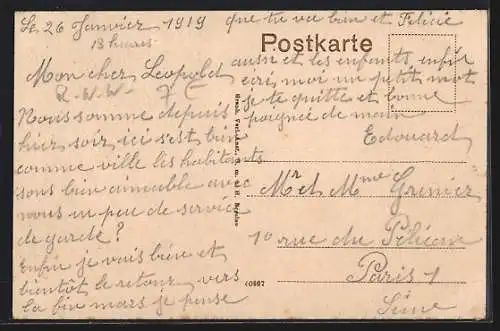 Le 26 Janvier 1919
18 heures
Mon cher Leopold
R-W-W- 7 E
Nous somme depuis
hier soir ici s'est bien
comme ville les habitants
sons bien aimeable avec
nous un peu de service
de garde?
Enfin je vais bien et
bientôt le retour vers
la fin mars je pense
que tu va bien et Felicie
aussi et les enfants, enfin
ecri moi un petit mot
je te quitte et bonne
poignée de main
Edouard
Postkarte
Mr et Mme Grenier
1e rue du Pélican
Paris 1
Seine
40867